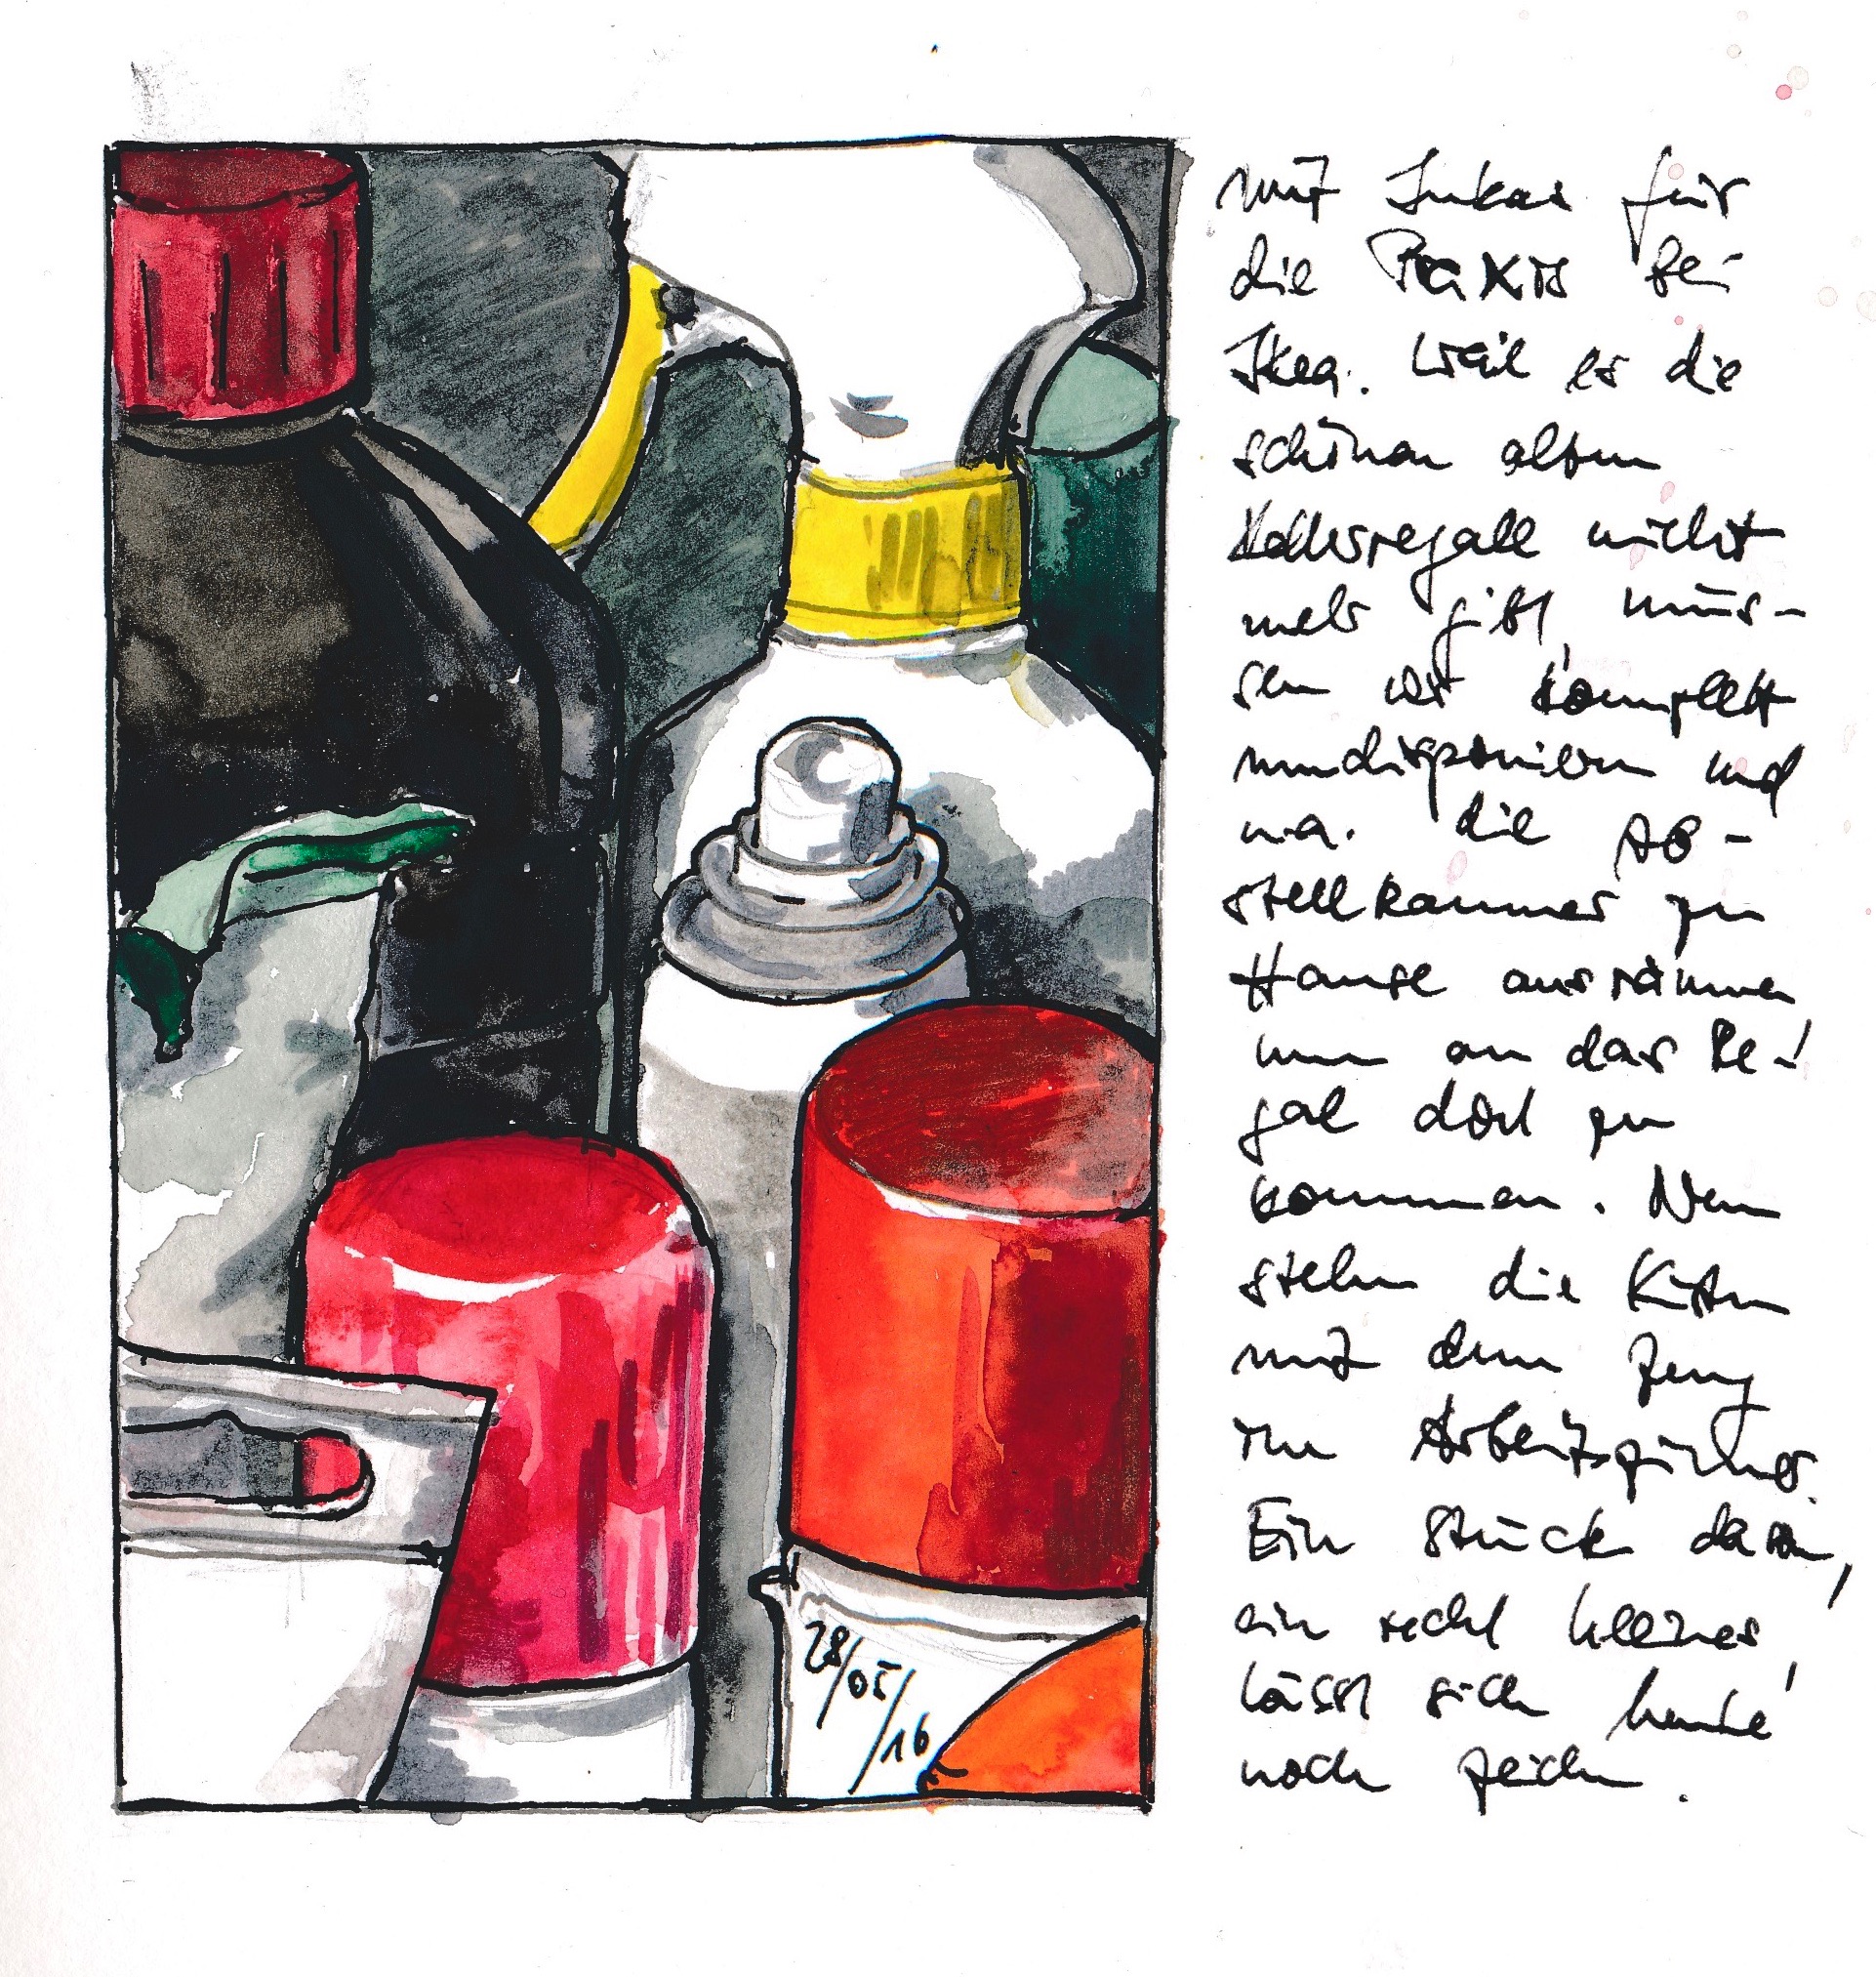 mit Lukas für
die Praxis bei
Ikea. Weil es die
schönen alten
Kellerregale nicht
mehr gibt, müs-
sen wir komplett
umdisponieren und
u.a. die Ab-
stellkammer zu
Hause ausräumen
um an das Re-
gal dort zu
kommen. Nun
stehn die Kisten
mit dem Zeug
im Arbeitszimmer.
Ein Stück davon,
ein recht kleines,
lässt sich heute
noch zeichn.
28/05/16